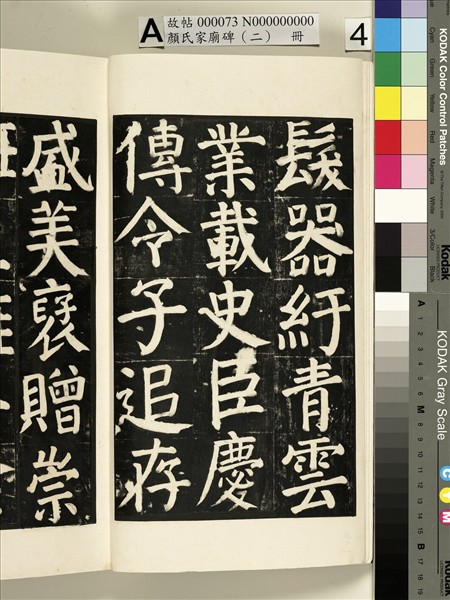 A
故帖 000073 N000000000
顏氏家廟碑(二) 冊
4
髮器紆青雲
業載史臣慶
傳令子追存
盛美褒贈崇
KODAK Color Control Patches
Cyan
Green
Yellow
Red
Magenta
White
3/Color
Black
Kodak
KODAK Gray Scale
A 1 2 3 4 5 6 M 8 9 10 11 12 13 14 15 B 17 18 19
C
Y
M
Kodak